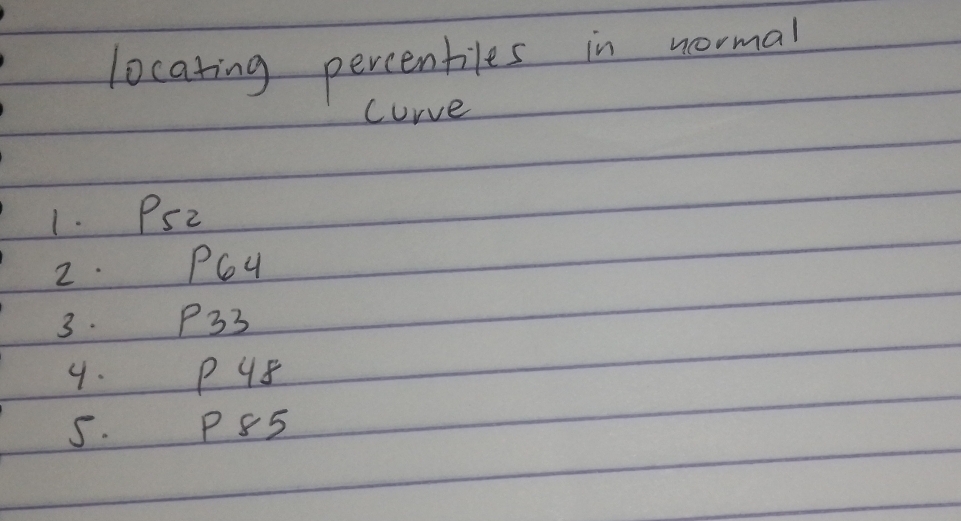 locating percentiles in normal
curve
1. P52
2. P64
3. P33
4. P 48
5. P 85